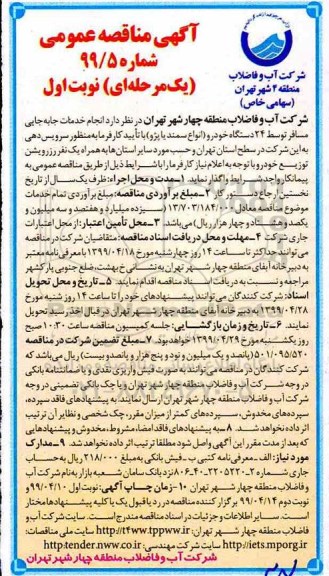 آگهی مناقصه عمومی
شماره ۹۹/۵
(یک مرحله‌ای) نوبت اول
شرکت آب و فاضلاب
منطقه ۴ شهر تهران
(سهامی خاص)
شرکت آب و فاضلاب منطقه چهار شهر تهران در نظر دارد انجام خدمات جابه‌جایی
مسافر توسط ۲۴ دستگاه خودرو (انواع سمند یا پژو) با تأیید کارفرما به منظور سرویس‌دهی
به این شرکت در سطح استان تهران و حسب مورد سایر استان‌ها به همراه یک نفر رزرویشن
توزیع خودرو با توجه به اعلام نیاز کارفرما را با شرایط ذیل از طریق مناقصه عمومی به
پیمانکار واجد شرایط واگذار نماید. ۱-مدت و محل اجرا: ظرف یک سال از تاریخ
نخستین ارجاع ۲-مبلغ برآوردی مناقصه: مبلغ برآوردی تمام خدمات
موضوع مناقصه معادل (سیزده میلیارد و هفتصد و سه میلیون و
یکصد و هشتاد و چهار هزار ریال) می‌باشد. ۳-محل تأمین اعتبار: از محل اعتبارات
جاری شرکت ۴-مهلت و محل دریافت اسناد مناقصه: متقاضیان شرکت در مناقصه
می‌توانند حداکثر تا ساعت ۱۴ روز چهارشنبه مورخ ۱۳۹۹/۰۴/۱۸ با معرفی‌نامه معتبر
به دبیرخانه آبفای منطقه چهار شهر تهران به نشانی خ بهشت، ضلع جنوبی پارک شهر
مراجعه و نسبت به دریافت اسناد مناقصه اقدام نمایند. ۵-تاریخ و محل تحویل
اسناد: شرکت کنندگان می‌توانند پیشنهادهای خود را تا ساعت ۱۴ روز شنبه مورخ
۱۳۹۹/۰۴/۲۸ به دبیرخانه آبفای منطقه چهار شهر تهران در قبال اخذ رسید تحویل
نمایند. ۶-تاریخ و زمان بازگشایی: جلسه کمیسیون مناقصه ساعت ۱۰:۳۰ صبح
روز یکشنبه مورخ ۱۳۹۹/۰۴/۲۹ خواهد بود. ۷-مبلغ تضمین شرکت در مناقصه
۵۰۱/۰۹۵/۵۲۰ (پانصد و یک میلیون و نود و پنج هزار و پانصد و بیست) ریال می‌باشد که
شرکت کنندگان در مناقصه می‌توانند به صورت فیش واریزی نقدی و یا ضمانتنامه بانکی
در وجه شرکت آب و فاضلاب منطقه چهار شهر تهران و یا چک بانکی تضمینی در وجه
شرکت آب و فاضلاب منطقه چهار شهر تهران ارسال نمایند. به پیشنهادهای فاقد سپرده،
سپرده‌های مخدوش، سپرده‌های کمتر از میزان مقرر، چک شخصی و نظایر آن ترتیب
اثر داده نخواهد شد. ۸-به پیشنهادهای فاقد امضاء، مشروط، مخدوش و پیشنهادهایی
که بعد از مدت مقرر این آگهی واصل شود مطلقا ترتیب اثر داده نخواهد شد. ۹-مدارک
مورد نیاز: الف-معرفی‌نامه کتبی ب-فیش بانکی به مبلغ ۲۱۸/۰۰۰ ریال به حساب
جاری شماره نزد بانک سامان شعبه بازار به نام شرکت آب
و فاضلاب منطقه چهار شهر تهران ۱۰-زمان چاپ آگهی: نوبت اول ۹۹/۰۴/۱۰ و
نوبت دوم ۹۹/۰۴/۱۴ برگزار کننده مناقصه در رد یا قبول یک یا کلیه پیشنهادها مختار
است. سایر اطلاعات و جزئیات در اسناد مناقصه مندرج است. سایت شرکت آب و
فاضلاب منطقه چهار شهر تهران http://t4ww.tpww.ir سایت ملی مناقصات:
http://iets.mporg.ir سایت شرکت مهندسی: http:tender.nww.co.ir
شرکت آب و فاضلاب منطقه چهار شهر تهران